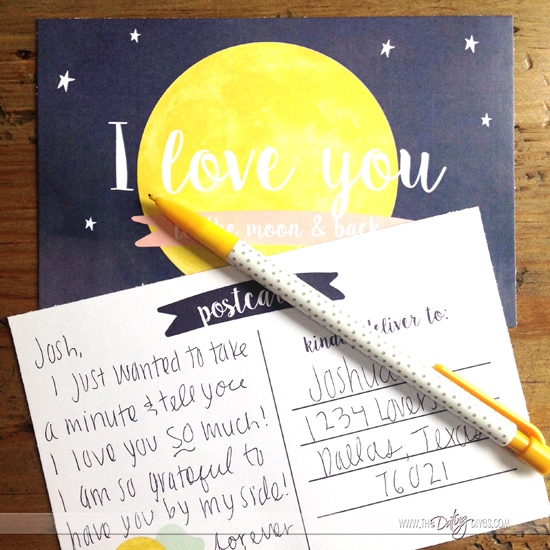 I love you
to the moon & back
postcard
Josh,
I just wanted to take
a minute & tell you
I love you so much!
I am so grateful to
have you by my side!
forever
kindly deliver to:
Joshua
1234 Lovers
Dallas, Texas
76021
WWW.THE Dating DIVAS.COM